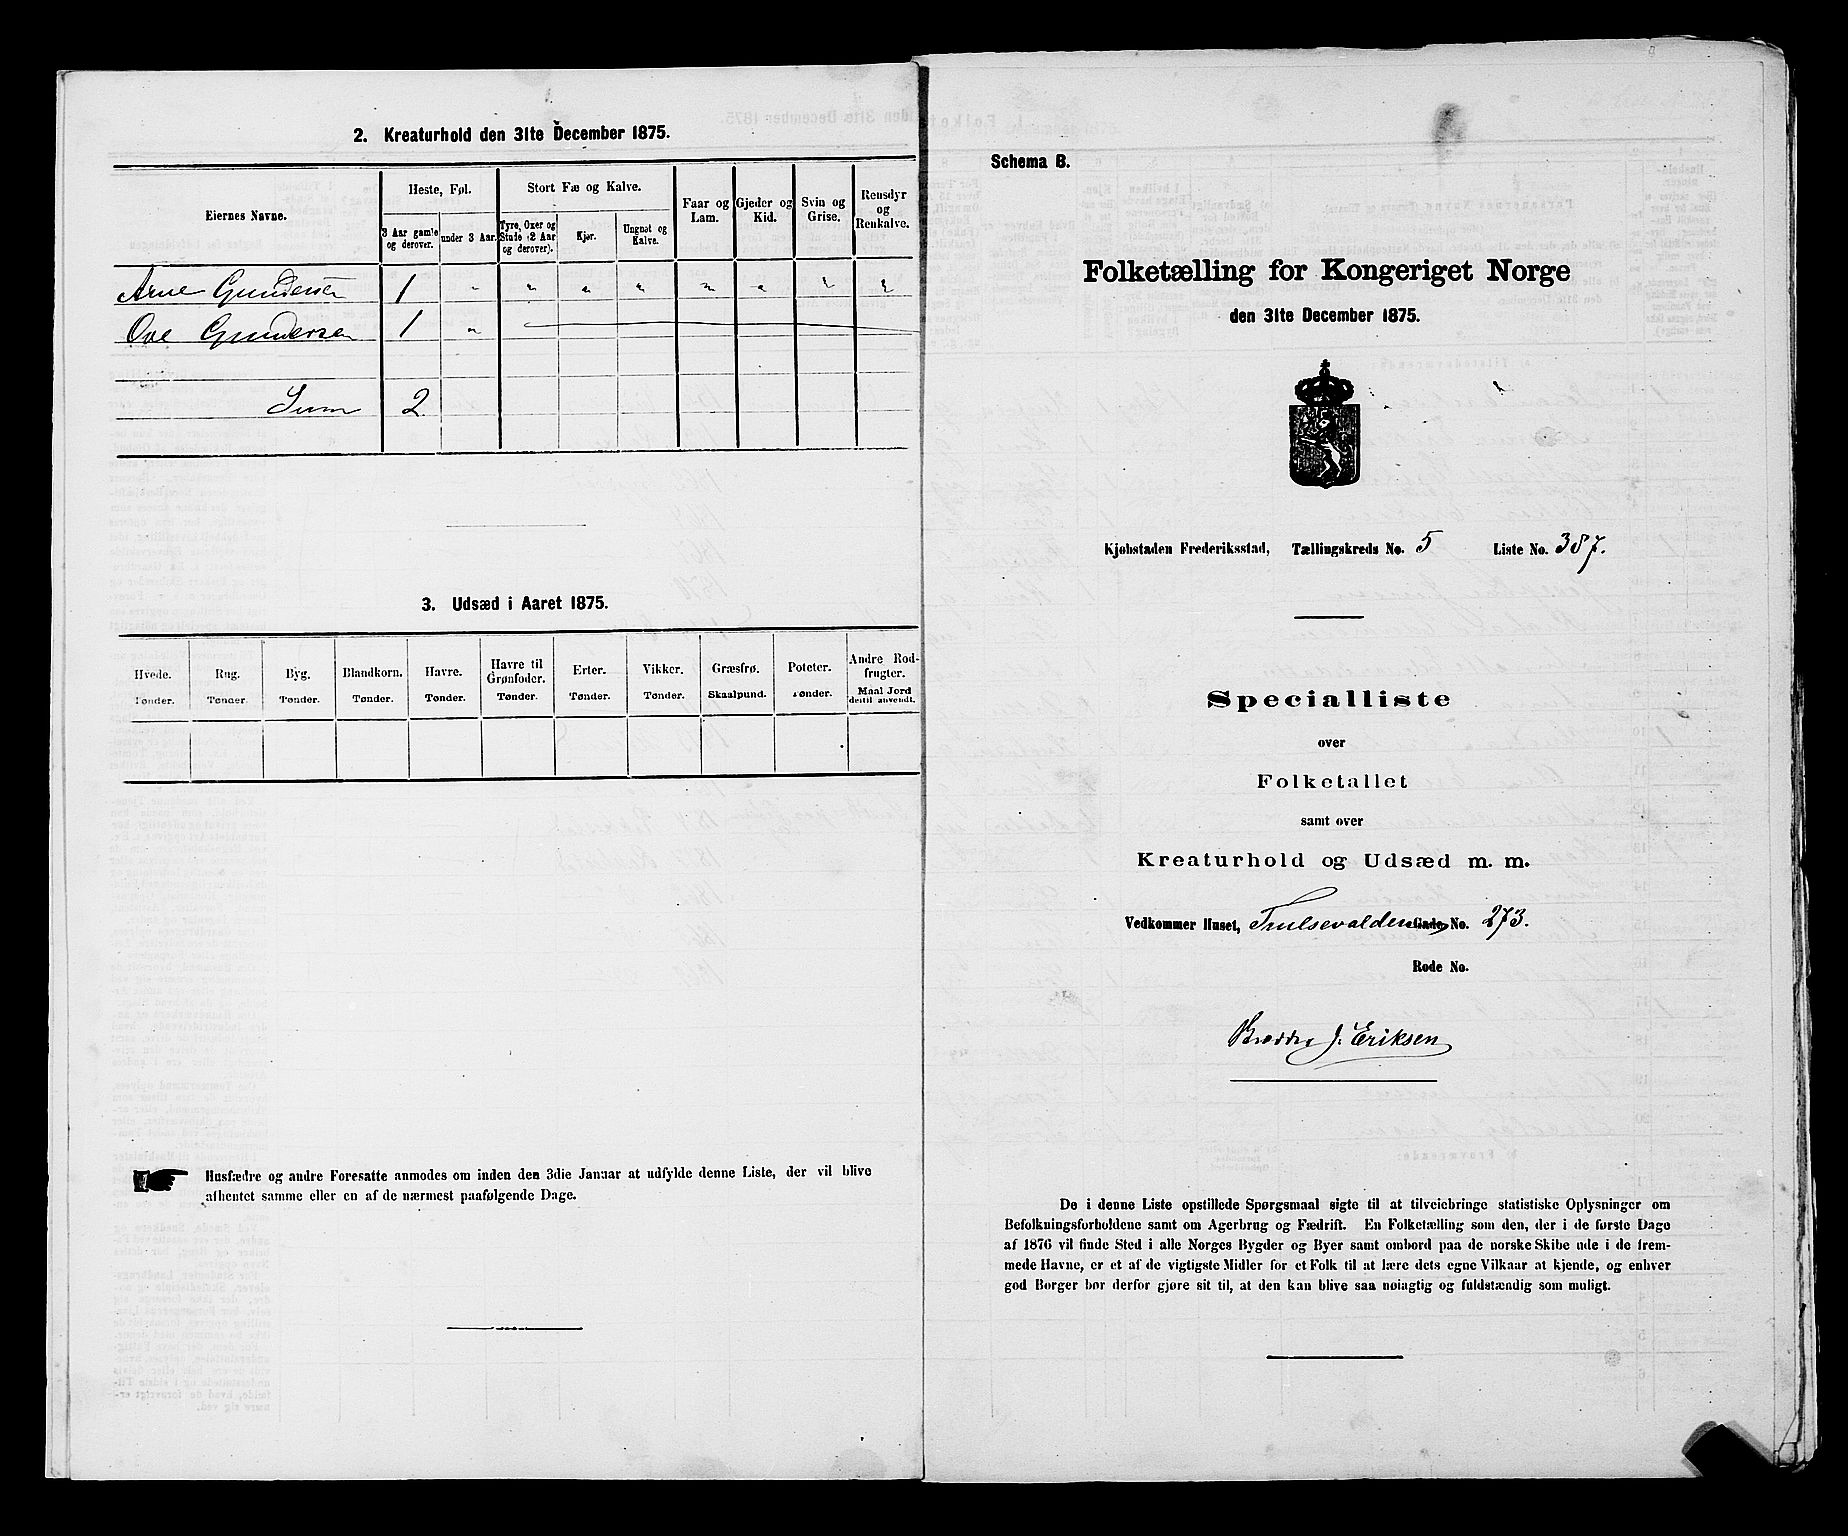 2. Kreaturhold den 31te December 1875.
Eiernes Navne.
Heste, Føl.
3 Aar gamle og derover.
under 3 Aar.
Stort Fæ og Kalve.
Tyre, Oxer og Stude (2 Aar og derover).
Kjør.
Ungnøt og Kalve.
Faar og Lam.
Gjeder og Kid.
Svin og Grise.
Rensdyr og Renkalve.
Arne Gundersen 1 " " " " " " " "
Ove Gundersen 1 "
Sum 2
3. Udsæd i Aaret 1875.
Hvede. Tønder.
Rug. Tønder.
Byg. Tønder.
Blandkorn. Tønder.
Havre. Tønder.
Havre til Grønfoder. Tønder.
Erter. Tønder.
Vikker. Tønder.
Græsfrø. Skaalpund.
Poteter. Tønder.
Andre Rodfrugter. Maal Jord dertil anvendt.
Husfædre og andre Foresatte anmodes om inden den 3die Januar at udfylde denne Liste, der vil blive
afhentet samme eller en af de nærmest paafølgende Dage.
Schema B.
Folketælling for Kongeriget Norge
den 31te December 1875.
Kjøbstaden Frederiksstad, Tællingskreds No. 5 Liste No. 387.
Specialliste
over
Folketallet
samt over
Kreaturhold og Udsæd m. m.
Vedkommer Huset, Trulsevalden Gade No. 273.
Rode No.
J. Eriksen
De i denne Liste opstillede Spørgsmaal sigte til at tilveiebringe statistiske Oplysninger om
Befolkningsforholdene samt om Agerbrug og Fædrift. En Folketælling som den, der i de første Dage
af 1876 vil finde Sted i alle Norges Bygder og Byer samt ombord paa de norske Skibe ude i de frem-
mede Havne, er et af de vigtigste Midler for et Folk til at lære dets egne Vilkaar at kjende, og enhver
god Borger bør derfor gjøre sit til, at den kan blive saa nøiagtig og fuldstændig som muligt.